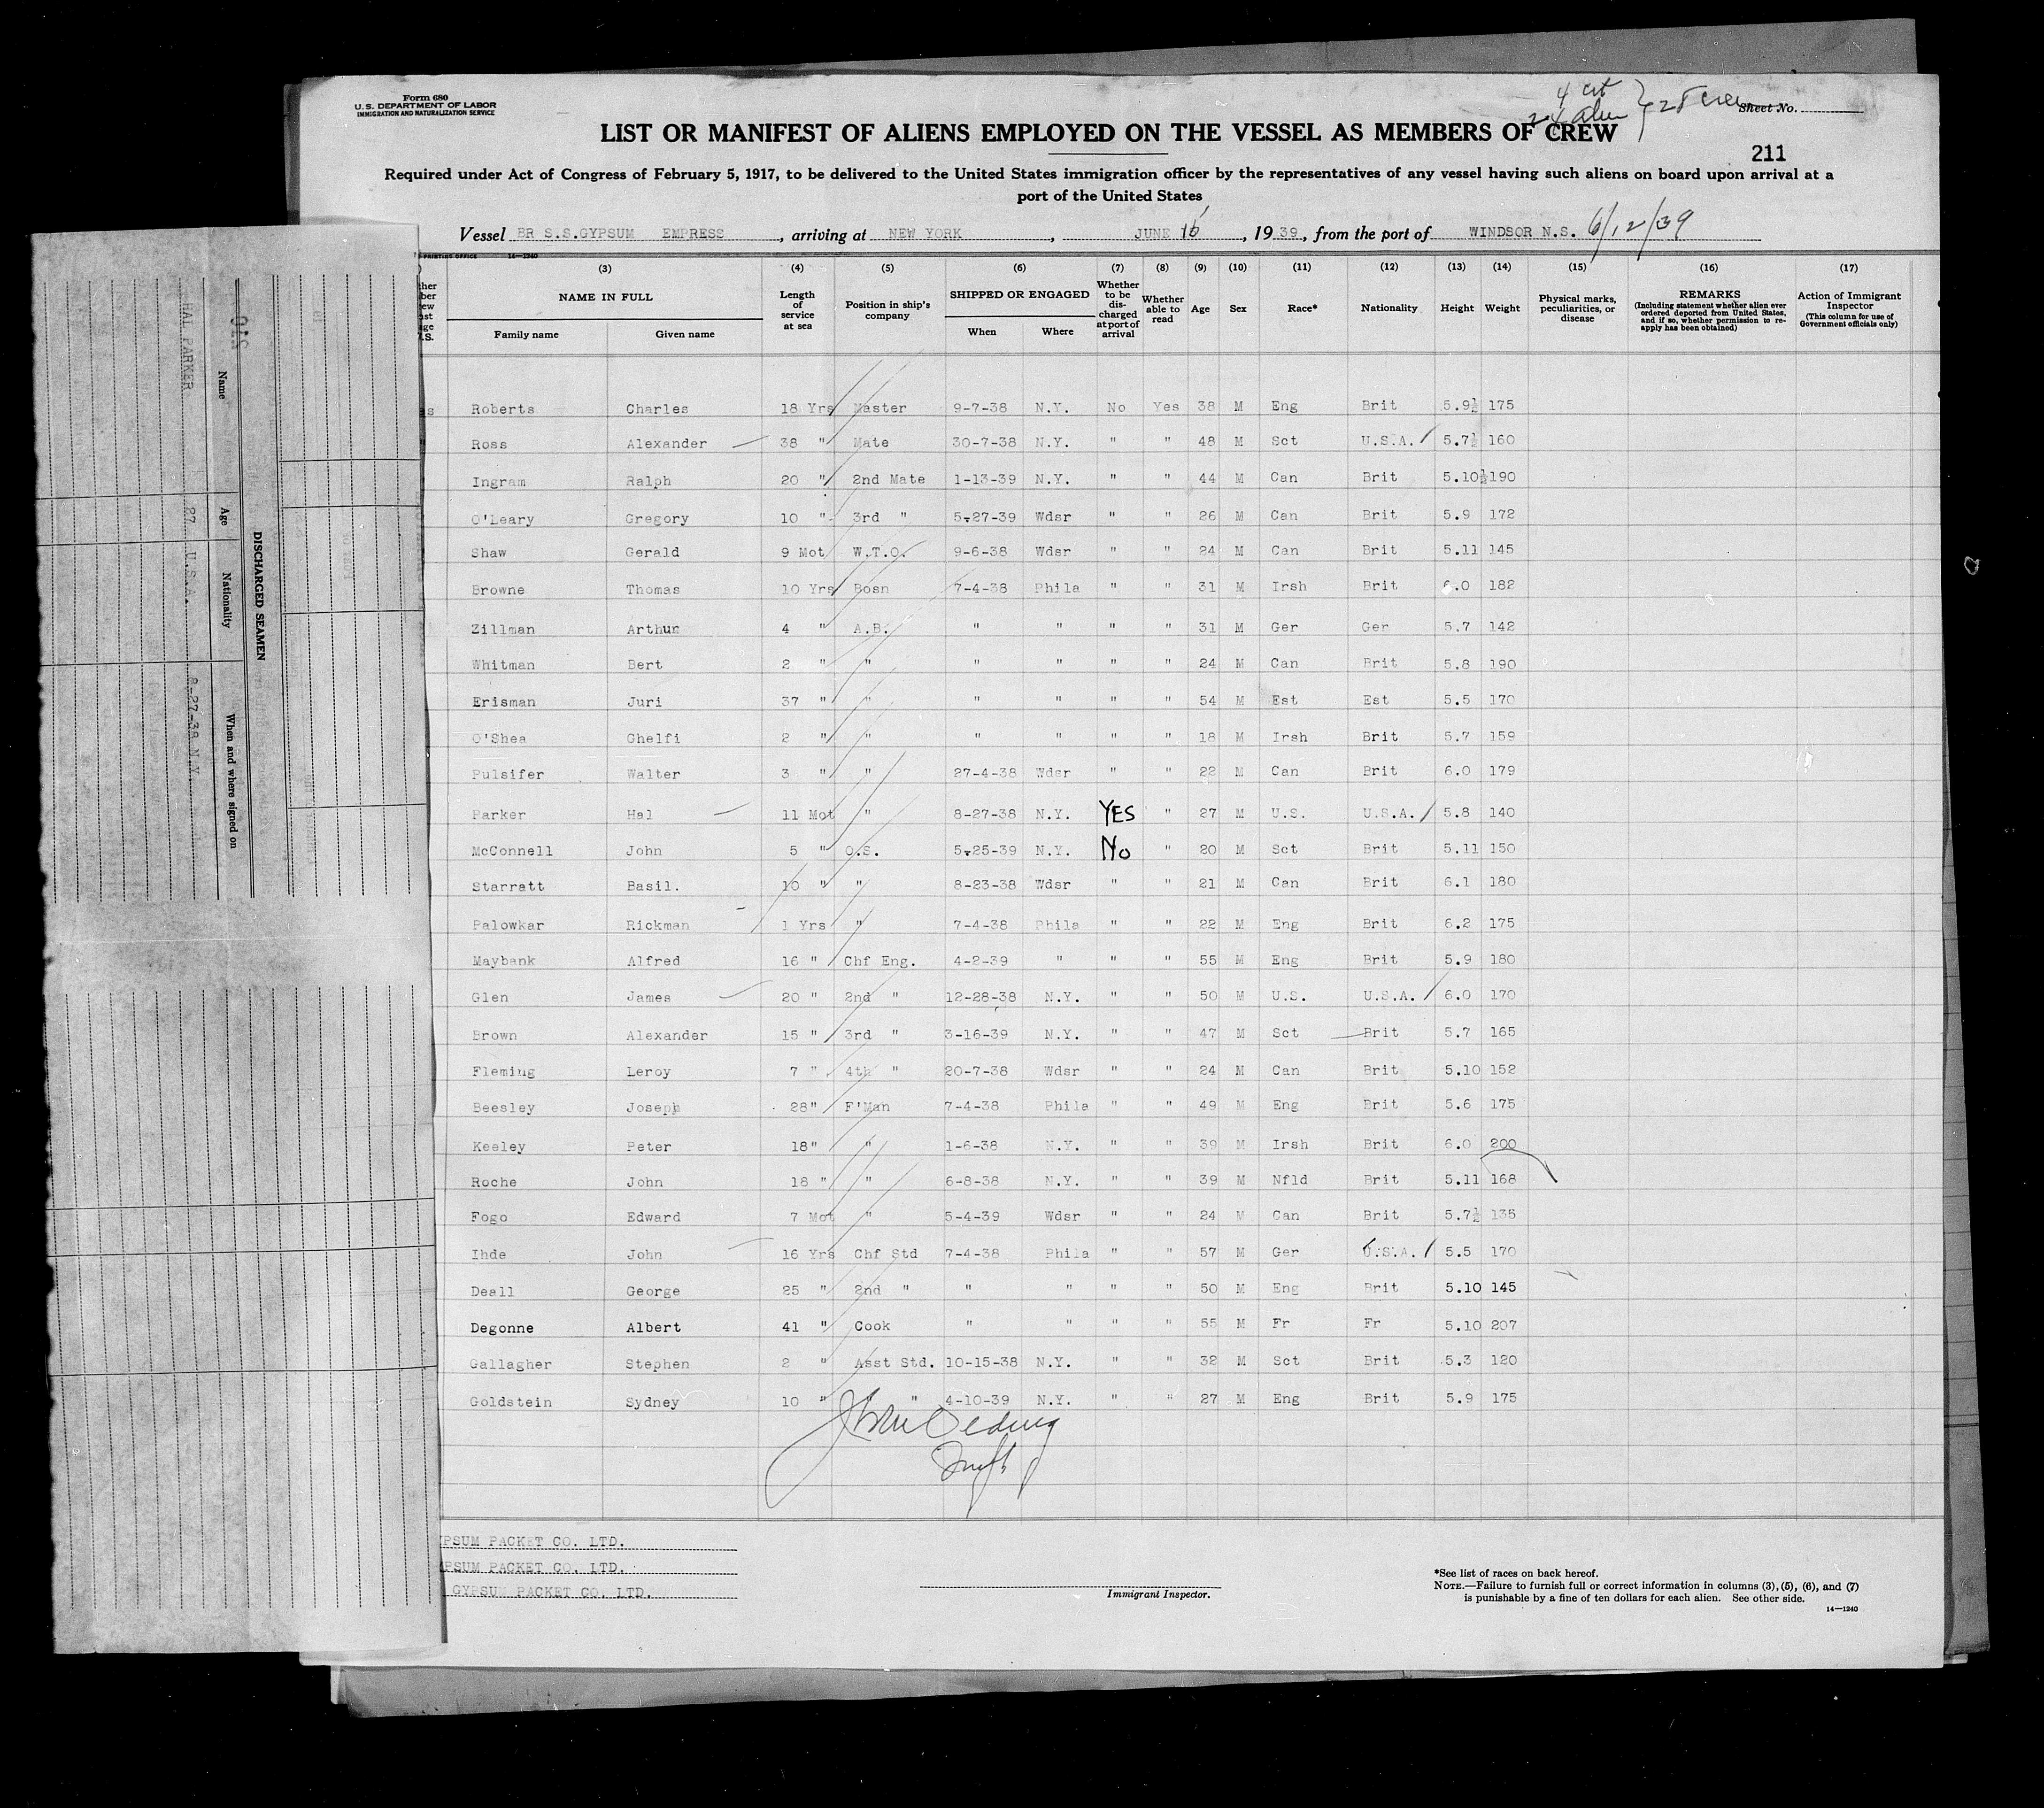 Form 680
U.S. DEPARTMENT OF LABOR
IMMIGRATION AND NATURALIZATION SERVICE
4 cit
24 alien } 28 crew
Sheet No.
LIST OR MANIFEST OF ALIENS EMPLOYED ON THE VESSEL AS MEMBERS OF CREW
211
Required under Act of Congress of February 5, 1917, to be delivered to the United States immigration officer by the representatives of any vessel having such aliens on board upon arrival at a
port of the United States
Vessel BR S.S.GYPSUM EMPRESS, arriving at NEW YORK, JUNE 16, 1939, from the port of WINDSOR N.S. 6/12/39
PRINTING OFFICE 14—1240
(3) (4) (5) (6) (7) (8) (9) (10) (11) (12) (13) (14) (15) (16) (17)
NAME IN FULL
Family name Given name
Length of service at sea
Position in ship's company
SHIPPED OR ENGAGED
When Where
Whether to be discharged at port of arrival
Whether able to read
Age
Sex
Race*
Nationality
Height
Weight
Physical marks, peculiarities, or disease
REMARKS
(Including statement whether alien ever ordered deported from United States, and if so, whether permission to reapply has been obtained)
Action of Immigrant Inspector
(This column for use of Government officials only)
Roberts Charles 18 Yrs Master 9-7-38 N.Y. No Yes 38 M Eng Brit 5.9½ 175
Ross Alexander 38 " Mate 30-7-38 N.Y. " " 48 M Sct U.S.A. 5.7½ 160
Ingram Ralph 20 " 2nd Mate 1-13-39 N.Y. " " 44 M Can Brit 5.10½ 190
O'Leary Gregory 10 " 3rd " 5-27-39 Wdsr " " 26 M Can Brit 5.9 172
Shaw Gerald 9 Mot W.T.O. 9-6-38 Wdsr " " 24 M Can Brit 5.11 145
Browne Thomas 10 Yrs Bosn 7-4-38 Phila " " 31 M Irsh Brit 6.0 182
Zillman Arthur 4 " A.B. " " " " 31 M Ger Ger 5.7 142
Whitman Bert 2 " " " " " " 24 M Can Brit 5.8 190
Erisman Juri 37 " " " " " " 54 M Est Est 5.5 170
O'Shea Ghelfi 2 " " " " " " 18 M Irsh Brit 5.7 159
Pulsifer Walter 3 " " 27-4-38 Wdsr " " 22 M Can Brit 6.0 179
Parker Hal 11 Mot " 8-27-38 N.Y. YES " 27 M U.S. U.S.A. 5.8 140
McConnell John 5 " O.S. 5-25-39 N.Y. No " 20 M Sct Brit 5.11 150
Starratt Basil. 10 " " 8-23-38 Wdsr " " 21 M Can Brit 6.1 180
Palowkar Rickman 1 Yrs " 7-4-38 Phila " " 22 M Eng Brit 6.2 175
Maybank Alfred 16 " Chf Eng. 4-2-39 " " " 55 M Eng Brit 5.9 180
Glen James 20 " 2nd " 12-28-38 N.Y. " " 50 M U.S. U.S.A. 6.0 170
Brown Alexander 15 " 3rd " 3-16-39 N.Y. " " 47 M Sct Brit 5.7 165
Fleming Leroy 7 " 4th " 20-7-38 Wdsr " " 24 M Can Brit 5.10 152
Beesley Joseph 28" F'Man 7-4-38 Phila " " 49 M Eng Brit 5.6 175
Keeley Peter 18" " 1-6-38 N.Y. " " 39 M Irsh Brit 6.0 200
Roche John 18 " " 6-8-38 N.Y. " " 39 M Nfld Brit 5.11 168
Fogo Edward 7 Mot " 5-4-39 Wdsr " " 24 M Can Brit 5.7½ 135
Ihde John 16 Yrs Chf Std 7-4-38 Phila " " 57 M Ger U.S.A. 5.5 170
Deall George 25 " 2nd " " " " " 50 M Eng Brit 5.10 145
Degonne Albert 41 " Cook " " " " 55 M Fr Fr 5.10 207
Gallagher Stephen 2 " Asst Std. 10-15-38 N.Y. " " 32 M Sct Brit 5.3 120
Goldstein Sydney 10 " " " 4-10-39 N.Y. " " 27 M Eng Brit 5.9 175
PSUM PACKET CO. LTD.
PSUM PACKET CO. LTD.
GYPSUM PACKET CO. LTD.
Immigrant Inspector.
*See list of races on back hereof.
NOTE.—Failure to furnish full or correct information in columns (3), (5), (6), and (7)
is punishable by a fine of ten dollars for each alien. See other side.
14—1240
DISCHARGED SEAMEN
Name Age Nationality When and where signed on
HAL PARKER 27 U.S.A. 8-27-38 N.Y.